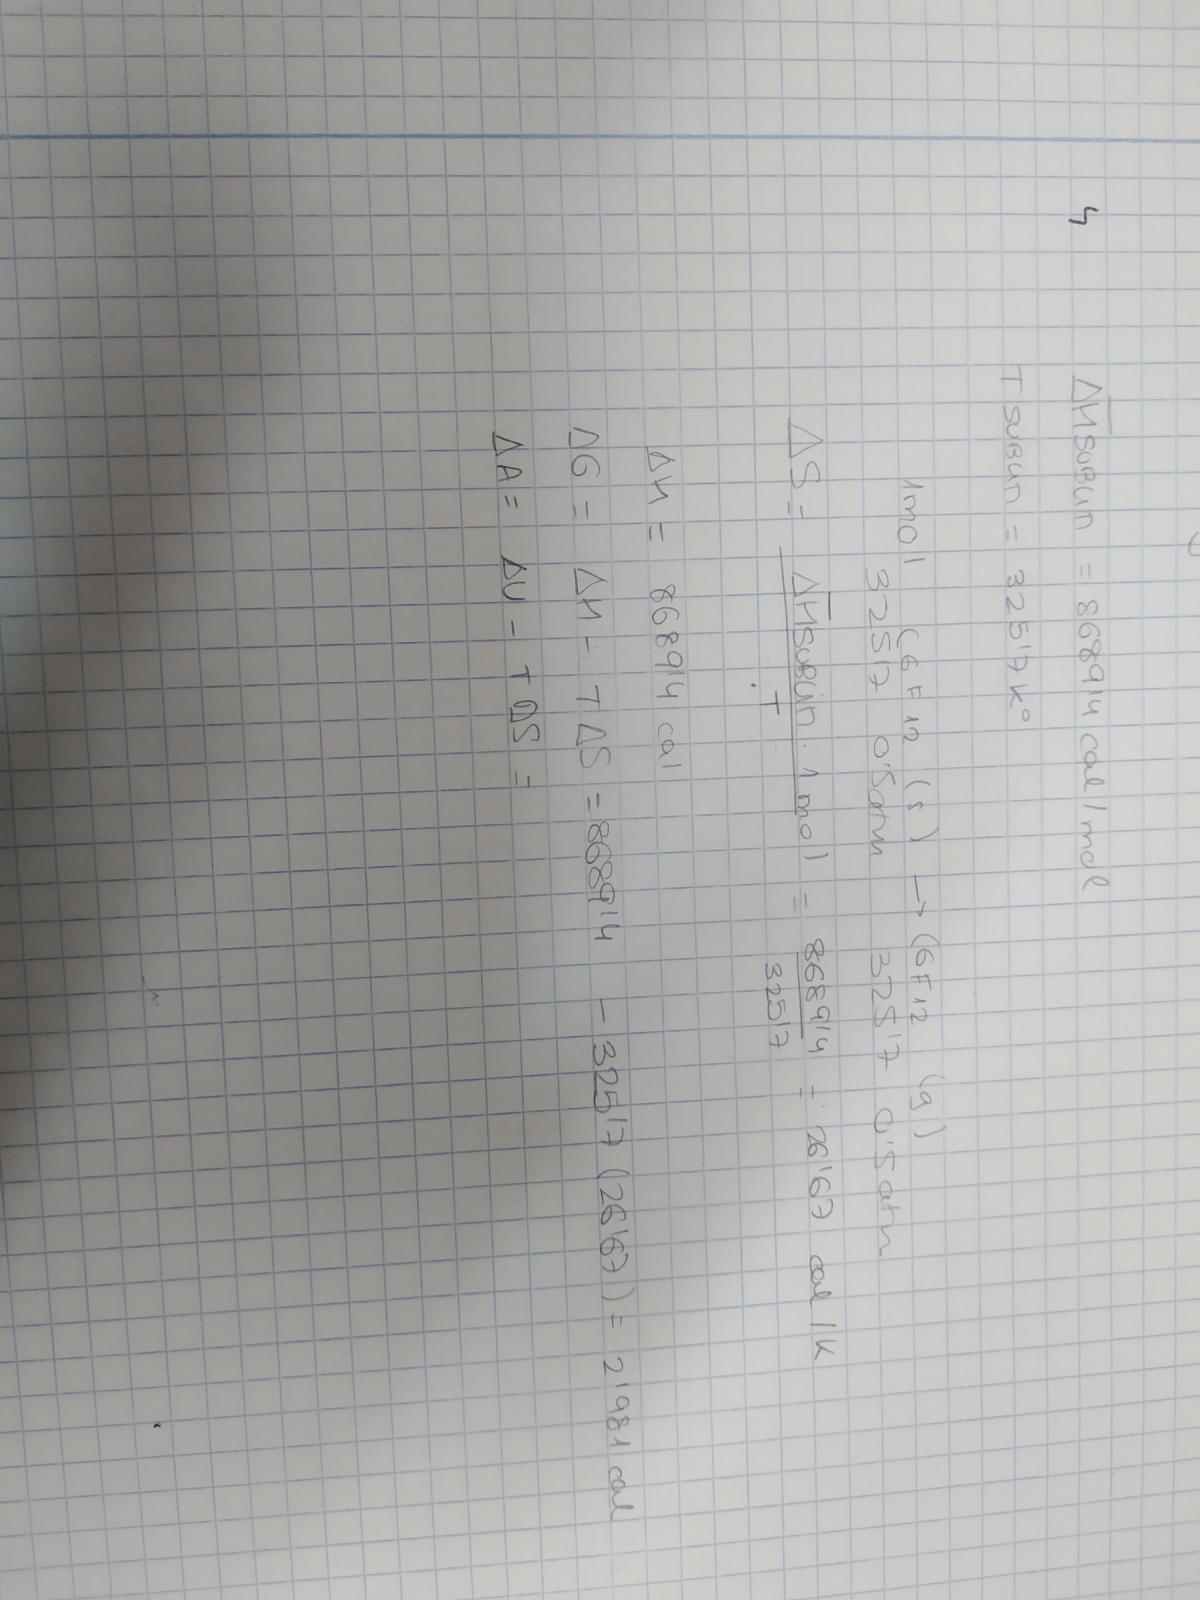 4
ΔH̅subli = 8689'4 cal/mol
T subli = 325'7 K°
1mol C6F12 (s) → C6F12 (g)
325'7 0'5atm 325'7 0'5atm
ΔS = ΔH̅subli · 1mol / T = 8689'4 / 325'7 = 26'67 cal/K
ΔH = 8689'4 cal
ΔG = ΔH - TΔS = 8689'4 - 325'7 (26'67) = 2'981 cal
ΔA = ΔU - TΔS =